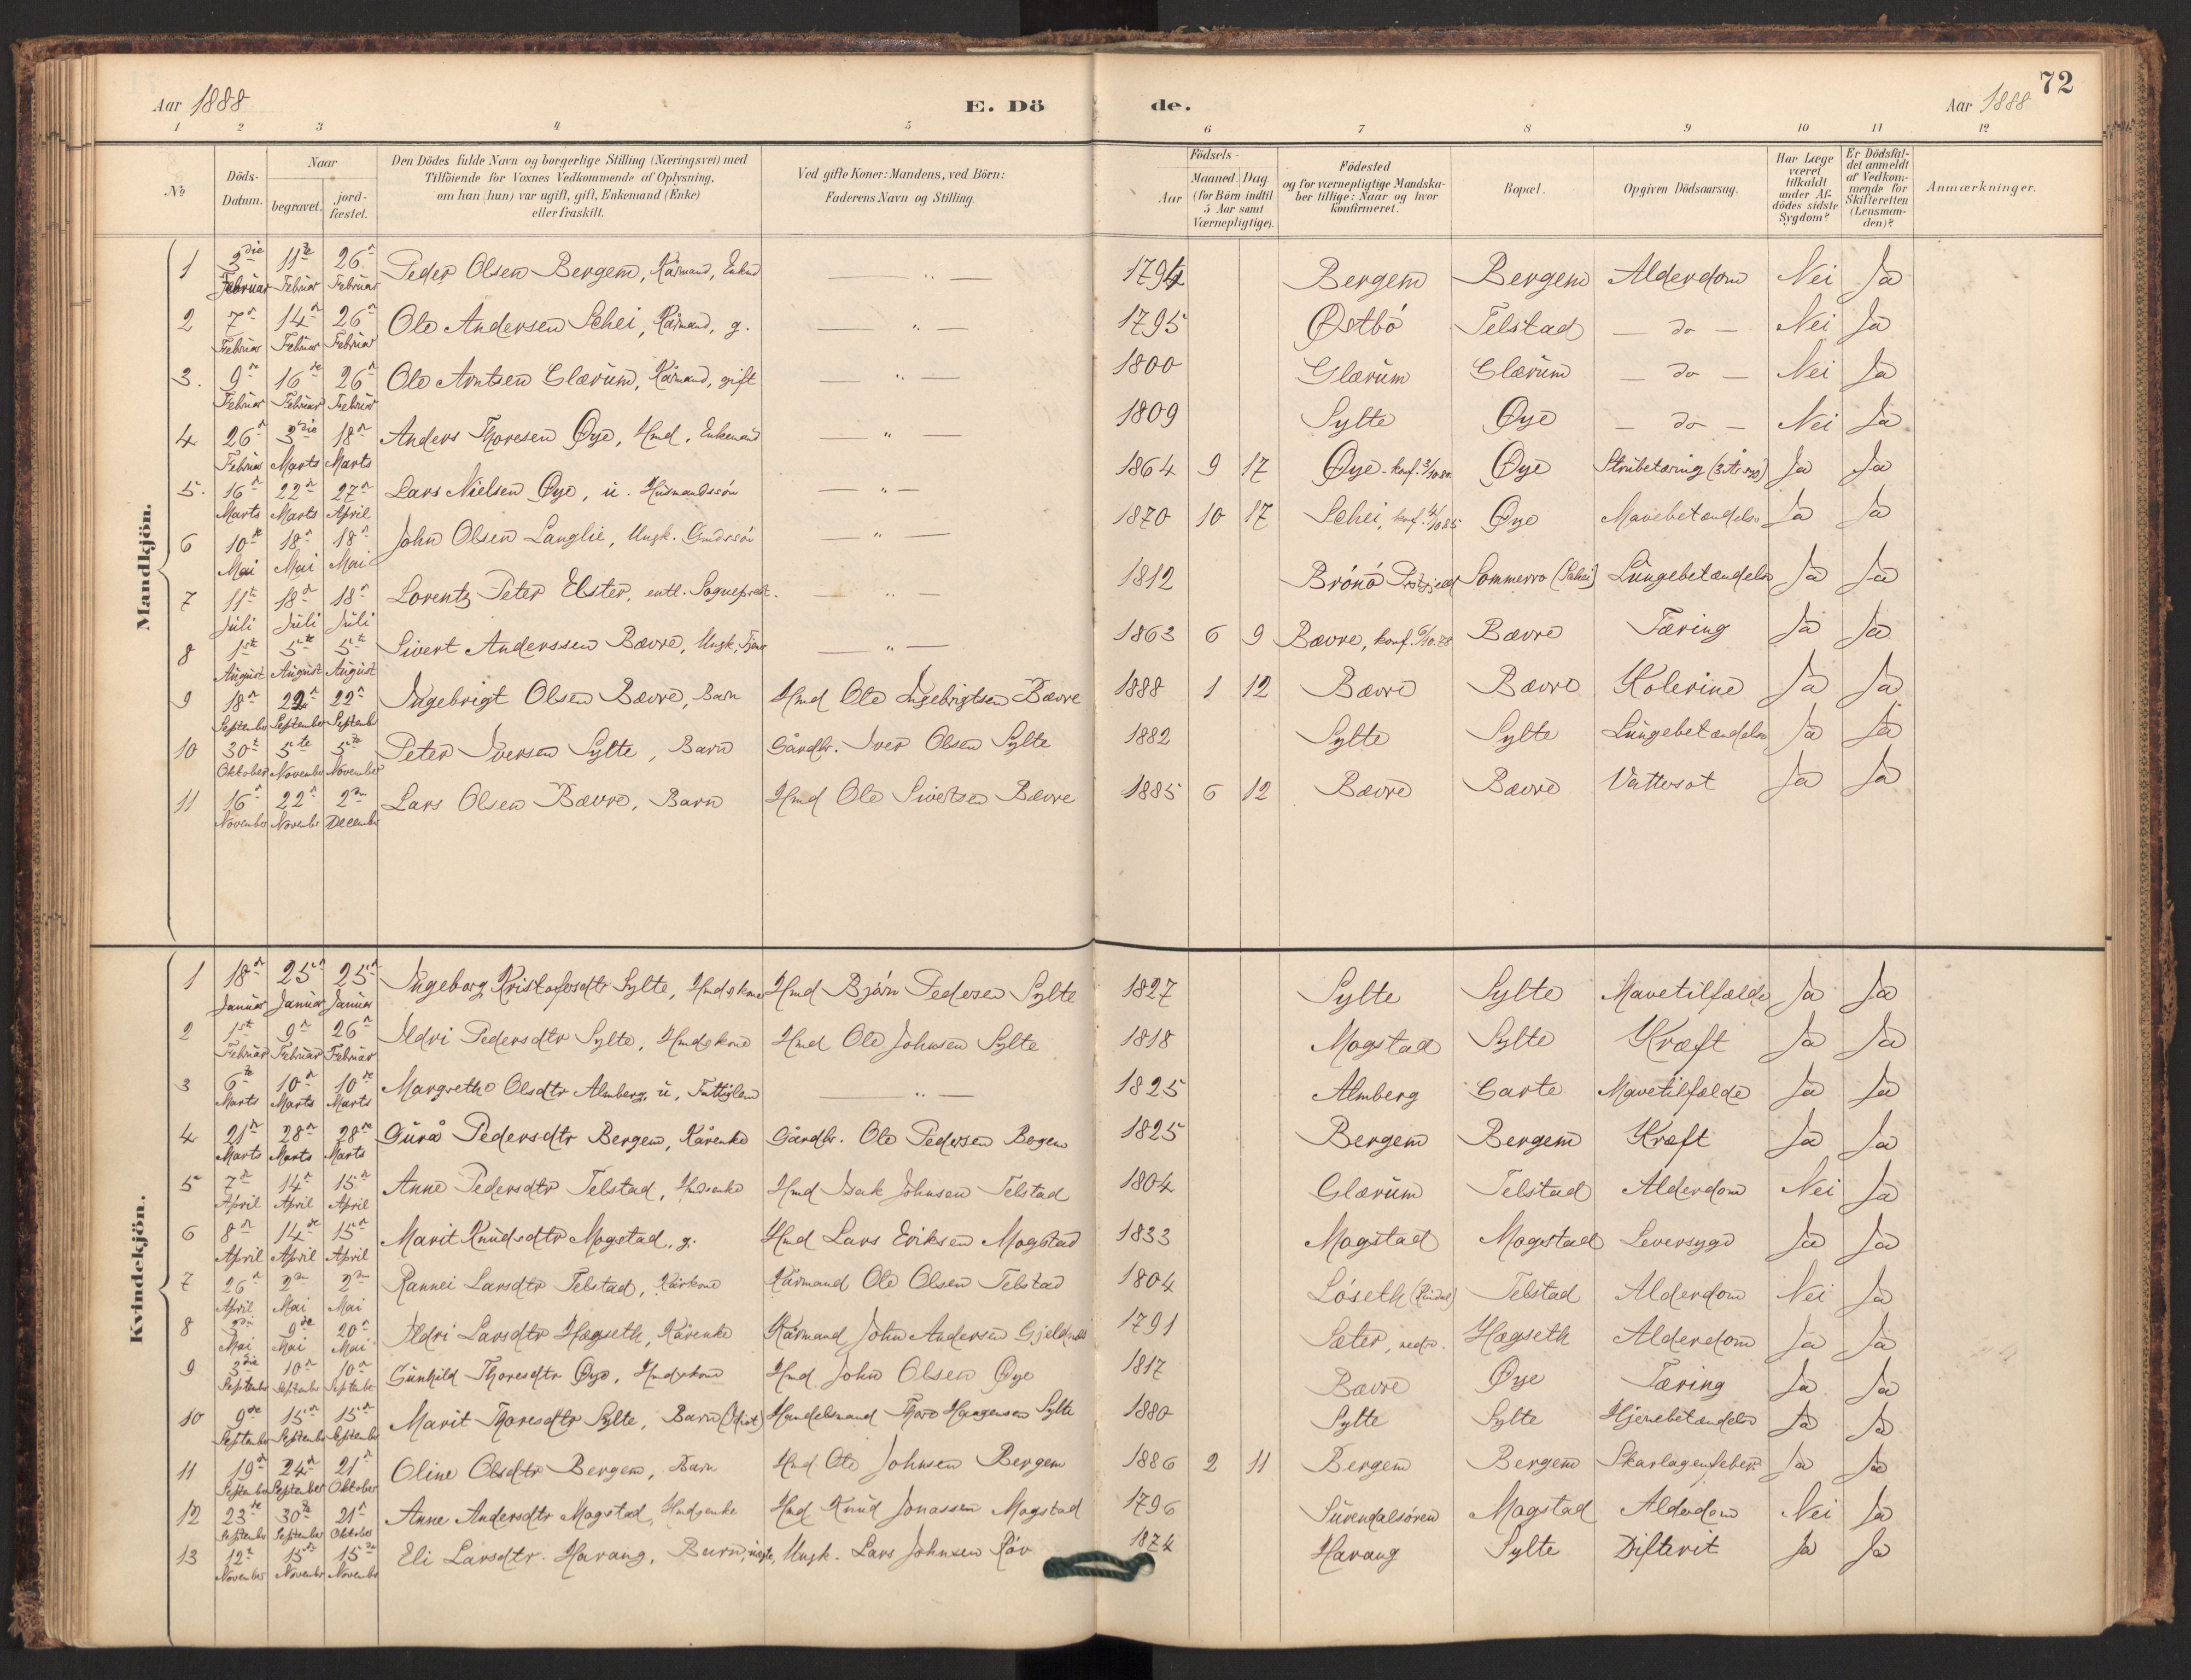 72
Aar 1888
E. Döde.
Aar 1888
1 2 3 4 5 6 7 8 9 10 11 12
No
Döds-Datum.
Naar
begravet.
jord-fæstet.
Den Dödes fulde Navn og borgerlige Stilling (Næringsvei) med
Tilföiende for Voxnes Vedkommende af Oplysning,
om han (hun) var ugift, gift, Enkemand (Enke)
eller fraskilt.
Ved gifte Koner: Mandens, ved Börn:
Faderens Navn og Stilling.
Födsels-
Aar
Maaned. Dag.
(for Börn indtil
5 Aar samt
Værnepligtige).
Födested
og for værnepligtige Mandska-
ber tillige: Naar og hvor
konfirmeret.
Bopæl.
Opgiven Dödsaarsag.
Har Læge
været
tilkaldt
under Af-
dödes sidste
Sygdom?
Er Dödsfal-
det anmeldt
af Vedkom-
mende for
Skifteretten
(Lensman-
den)?
Anmærkninger.
Mandkjön.
1 3die Februar 11te Februar 26n Februar Peder Olsen Bergem, Kårmand, Enkmd — " — 1794 Bergem Bergem Alderdom Nei Ja
2 7n Februar 14n Februar 26n Februar Ole Andersen Schei, Kårmand, g. — " — 1795 Østbö Telstad — do — Nei Ja
3. 9de Februar 16de Februar 26n Februar Ole Arntsen Glærum, Kårmand, gift — " — 1800 Glærum Glærum — do — Nei Ja
4 26n Februar 3die Marts 18n Marts Anders Thoresen Øye, Hmd, Enkemand — " — 1809 Sylte Øye — do — Nei Ja
5. 16n Marts 22n Marts 27n April Lars Nielsen Øye, u. Husmandssön — " — 1864 9 17 Øye - konf. 3/10 80 Øye Strubetæring Ja Ja
6 10de Mai 18n Mai 18n Mai John Olsen Langlie, Ungk. Gmdssön — " — 1870 10 17 Schei, konf. 4/10 85 Øye Mavebetændelse Ja Ja
7 11te Juli 18n Juli 18n Juli Lorentz Peter Elster, entl. Sognepræst. — " — 1812 Brönö Prstgjeld Sommerro (Schei) Lungebetændelse Ja Ja
8 1ste August 5te August 5te August Sivert Anderssen Bævre, Ungk, — " — 1863 6 9 Bævre, konf. 6/10 78 Bævre Tæring Ja Ja
9 18n September 22n September 22n September Ingebrigt Olsen Bævre, Barn Hmd Ole Ingebrigtsen Bævre 1888 1 12 Bævre Bævre Kolerine Ja Ja
10 30te Oktober 5te November 5te November Peter Iversen Sylte, Barn Gårdbr. Iver Olsen Sylte 1882 Sylte Sylte Lungebetændelse Ja Ja
11 16n November 22n November 2den December Lars Olsen Bævre, Barn Hmd Ole Sivertsen Bævre 1885 6 12 Bævre Bævre Vattersot Ja Ja
Kvindekjön.
1 18n Januar 25n Januar 25n Januar Ingeborg Kristofersdtr Sylte, Hmdskone Hmd Björn Pedersen Sylte 1827 Sylte Sylte Mavetilfælde Ja Ja
2 1ste Februar 9n Februar 26n Februar Ildri Pedersdtr Sylte, Hmdskone Hmd Ole Johnsen Sylte 1818 Mogstad Sylte Kræft Ja Ja
3 6te Marts 10n Marts 10de Marts Margrethe Olsdtr Almberg, u, Fattiglem — " — 1825 Almberg Garte Mavetilfælde Ja Ja
4 21n Marts 28n Marts 28n Marts Gurå Pedersdtr Bergem, Kårenke Gårdbr. Ole Pedersen Bergem 1825 Bergem Bergem Kræft Ja Ja
5 7n April 14n April 15n April Anne Pedersdtr Telstad, Hmdsenke Hmd Isak Johnsen Telstad 1804 Glærum Telstad Alderdom Nei Ja
6 8n April 14de April 15n April Marit Knudsdtr Mogstad, g. Hmd Lars Eriksen Mogstad 1833 Mogstad Mogstad Leversyge Ja Ja
7 26n April 2den Mai 2den Mai Rannei Larsdtr Telstad, Kårkone Kårmand Ole Olsen Telstad 1804 Löseth (Rindal) Telstad Alderdom Nei Ja
8 Mai 9de Mai 20n Mai Ildri Larsdtr Hægseth, Kårenke Kårmand John Andersen Gjeldnes 1791 Sæter, nedr. Hægseth Alderdom Ja Ja
9 3die September 10n September 10n September Gunhild Thoresdtr Øye, Hmdskone Hmd John Olsen Øye 1817 Bævre Øye Tæring Ja Ja
10 9de September 15n September 15n September Marit Thoresdtr Sylte, Barn Handelsmand Thore Haagensen Sylte 1880 Sylte Sylte Hjernebetændelse Ja Ja
11 19n September 24n September 21n Oktober Oline Olsdtr Bergem, Barn Hmd Ole Johnsen Bergem 1886 2 11 Bergem Bergem Skarlagensfeber Ja Ja
12 23de September 30te September 21n Oktober Anne Andersdtr Mogstad, Hmdsenke Hmd Knud Jonassen Mogstad 1796 Surendalsören Mogstad Alderdom Nei Ja
13 12te November 15n November 15n November Eli Larsdtr. Harang, Barn, uægte, Ungk. Lars Johnsen Röv 1874 Harang Sylte Difterit Ja Ja